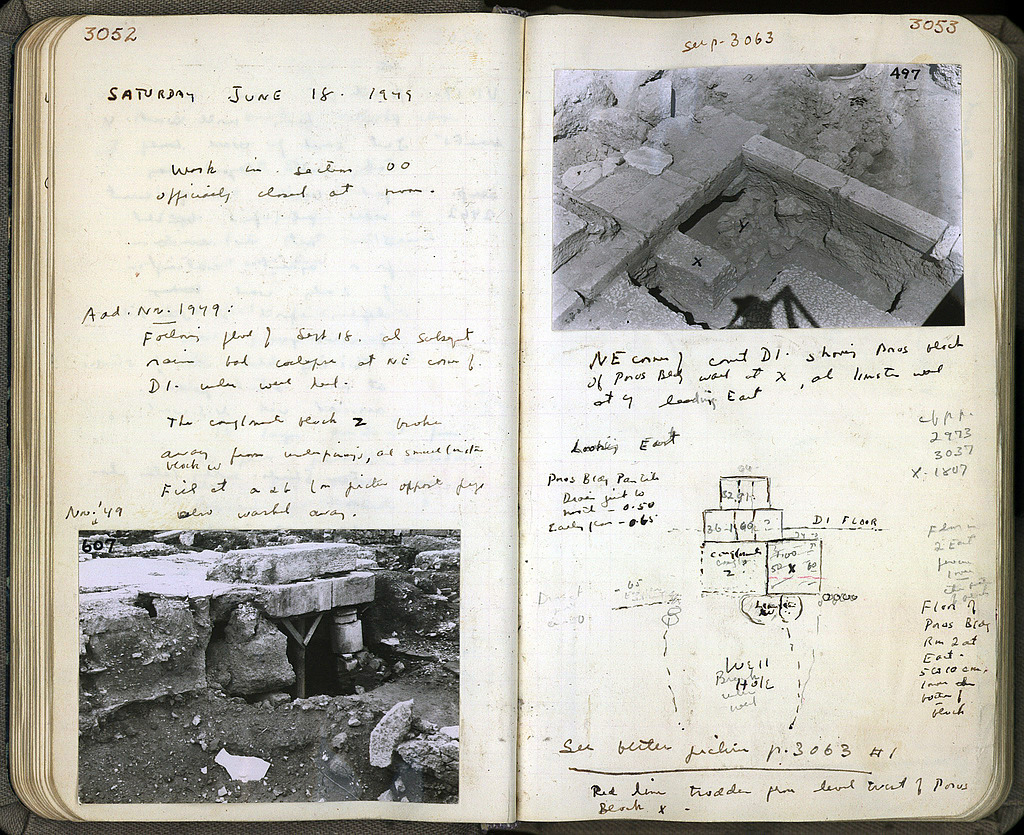 3052
SATURDAY JUNE 18. 1949
Work in section OO
officially closed at noon.
Add. Nov. 1949:
Following flood of Sept 18. and subsqt.
rain bad collapse at NE corner of
D1. under west
The conglomerate block Z broke
away from underpinnings, and small
block w
Fill at a + b (in picture opposite page
also washed away.
Nov. '49
607
3053
see p. 3063
497
X
Y
NE corner of court D1. showing Poros block
of Poros Bldg wall at X, and limestone wall
at Y leading East
cf. pp.
2973
3037
X-1807
Looking East
Poros Bldg Pan tile
Drain just to
north - 0.50
Early floor - 0.65
D1 FLOOR
conglomerate
Z
X
Well
Hole
Floor of
Poros Bldg
Rm 2 at
East.
5 to 10 cm.
lower than
bottom of
block
See better picture p. 3063 #1
Red line trodden floor level West of Poros
Block X -